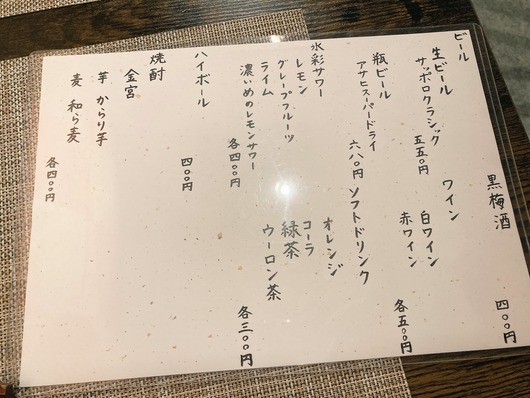 ビール
生ビール
サッポロクラシック
五五〇円
瓶ビール
アサヒスーパードライ
六八〇円
水彩サワー
レモン
グレープフルーツ
ライム
濃いめのレモンサワー
各四〇〇円
ハイボール
四〇〇円
焼酎
金宮
芋 からり芋
麦 和ら麦
各四〇〇円
黒梅酒
四〇〇円
ワイン
白ワイン
赤ワイン
各五〇〇円
ソフトドリンク
オレンジ
コーラ
緑茶
ウーロン茶
各三〇〇円